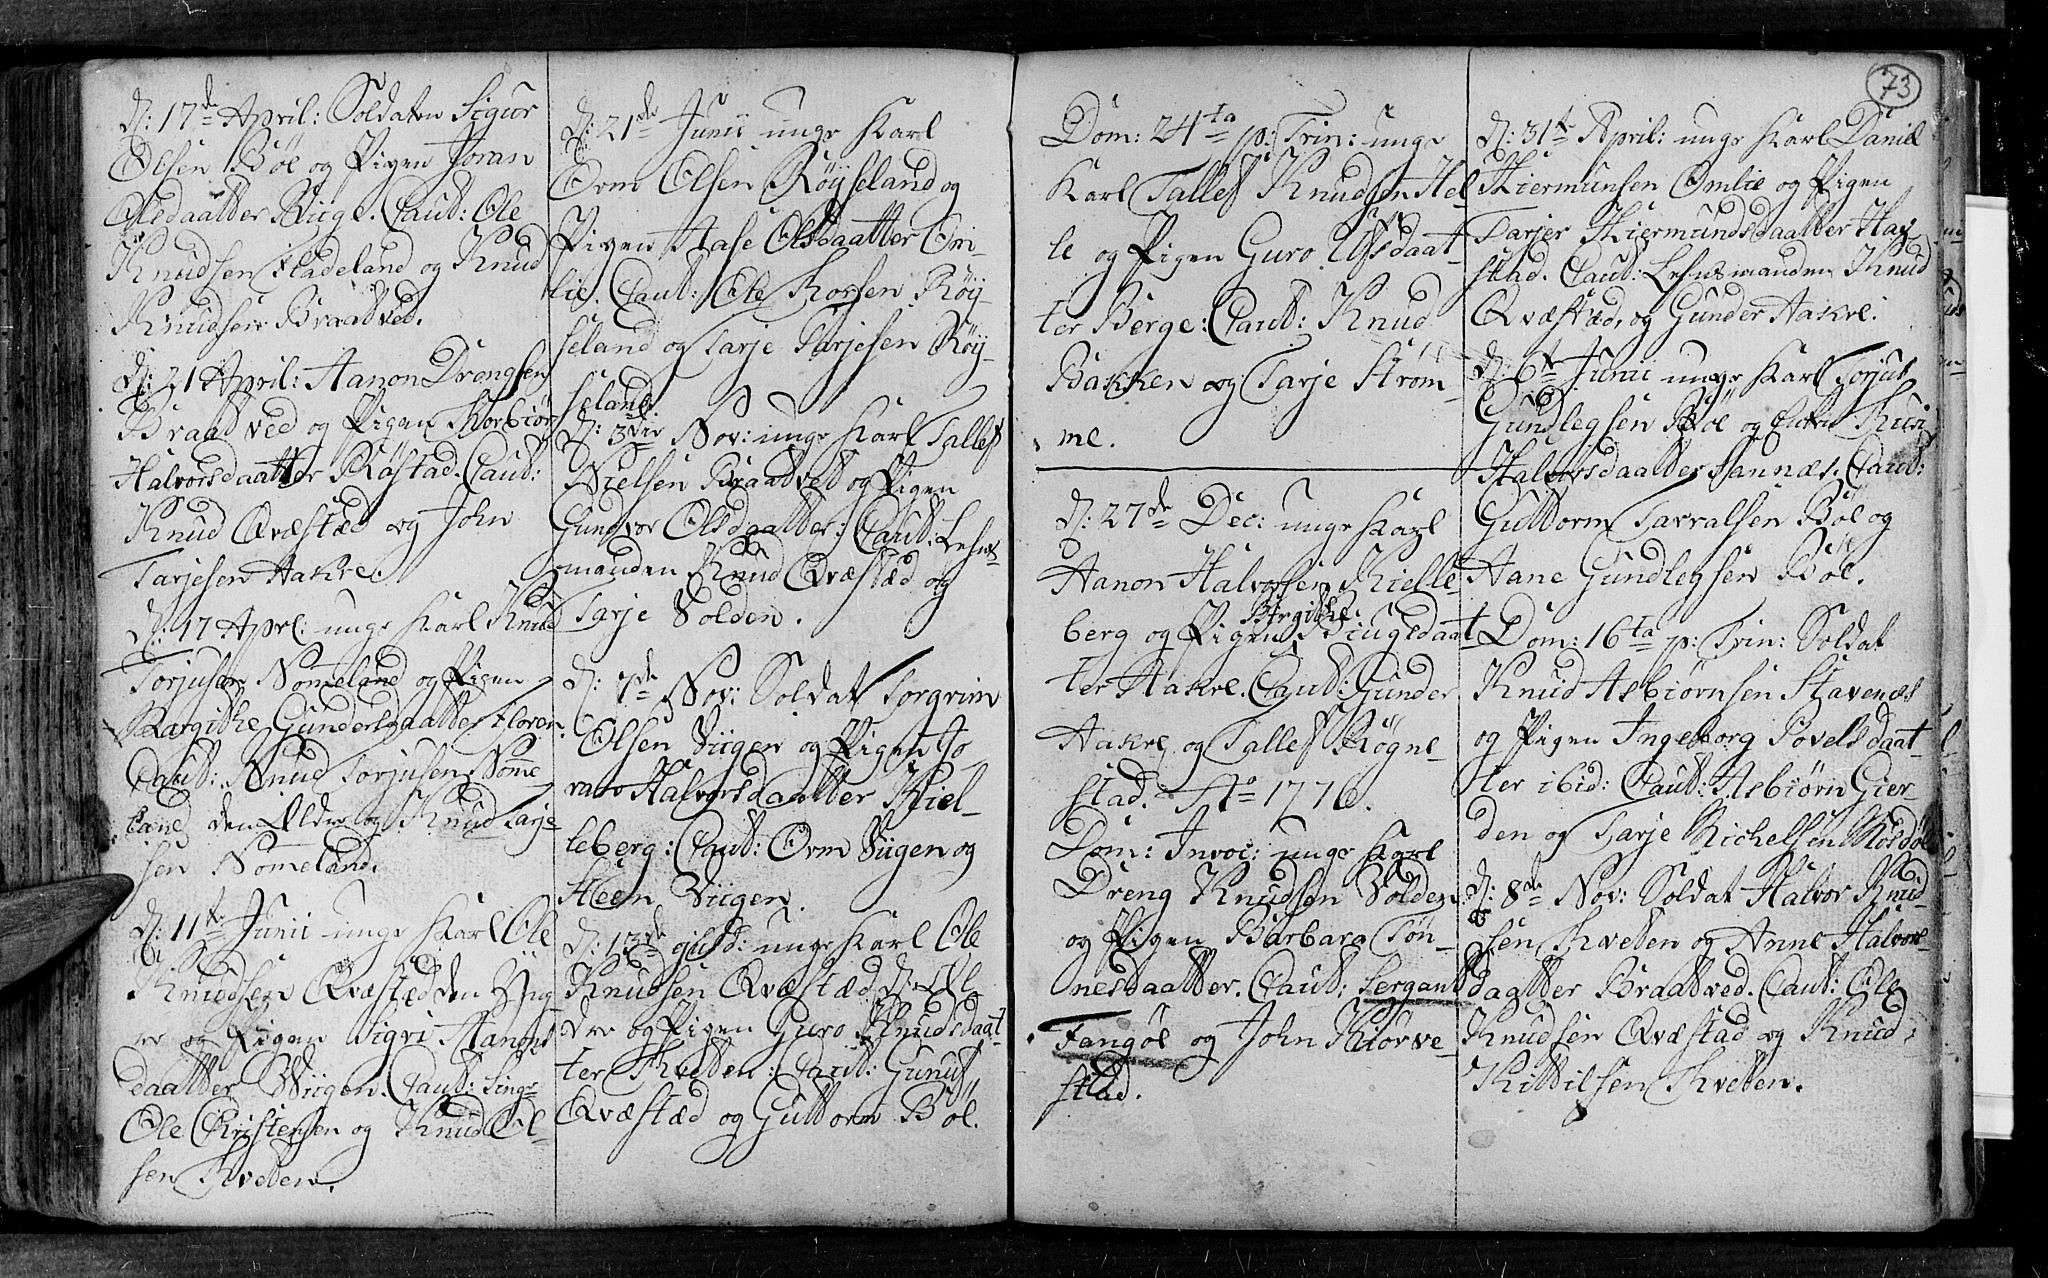 d: 17de April: Soldaten Sigur
Olsen Böe og Pigen Joran
Olsdaatter Biige. Caut: Ole
Knudsen Fladeland og Knud
Knudsen Braatved.
d: 21 April: Aanon Drengsen
Braatved og Pigen Thorbiör
Halvorsdaatter Röstad. Caut:
Knud Qvæstæd og John
Tarjesen Aakre.
d: 17 Aprl: unge Karl Knud
Torjusen Nomeland og Pigen
Bargithe Gundersdaatter Floren.
Caut: Knud Torjusen Nomme
land den Ældre og Knud Tarje
sen Nomeland.
d: 11te Junii unge Karl Ole
Knudsen Qvæstæd den Yng
re og Pigen Sigri Aanons
daatter Viigen. Caut:
Ole Christensen og Knud Ol-
sen Tveten.
d: 21de Junii unge Karl
Orm Olsen Röyseland og
Pigen Aase Olsdaatter Om-
lie. Caut: Ole Röy-
seland og Tarje Tarjesen Röy-
seland.
d: 3die Nov: unge Karl Tallef
Nielsen Braatved og Pigen
Gundvor Olsdaatter: Caut: Lehns
manden Knud Qvæstæd og
Tarje Volden.
d: 7de Nov: Soldat Torgrim
Olsen Viigen og Pigen Jo
rann Halvorsdaatter Kiel-
leberg: Caut: Orm Viigen og
Steen Viigen.
d: 13de ejusd: unge Karl Ole
Knudsen Qvæstæd d: Æl
dre og Pigen Guro Knudsdaat
ter Tveten: Caut: Gunuf
Qvæstæd og Guttorm Böe.
73
Dom: 24ta p: Trin: unge
Karl Tallef Knudsen Hel
le og Pigen Guro Ufsdaat-
ter Berge: Caut: Knud
Bakken og Tarje Ström-
me.
d: 27de Dec: unge Karl
Aanon Halvorsen Kielle
berg og Pigen Birgithe Biugsdaat
ter Aakre. Caut: Gunder
Aakre og Tallef Rögne
stad. Ao 1776.
Dom: Invoc: unge Karl
Dreng Knudsen Volden
og Pigen Barbara Tön-
nesdaatter. Caut: Sergant
Fangöe og John Kiörve-
stad.
d: 31te April: unge Karl Daniel
Thiermunsen Omlie og Pigen
Tarjer Thiermundsdaatter Hag
stad. Caut: Lehnsmanden Knud
Qvæstæd, og Gunder Aakre.
d: 6te Junii unge Karl Torjus
Gundlegsen Böe og Enken Turi
Halvorsdaatter Sannæs. Caut:
Guttorm Tarralsen Böe og
Aane Gundlegsen Böe.
Dom: 16ta p: Trin: Soldat
Knud Asbiörnsen Stavenæs
og Pigen Ingeborg Povelsdaat
ter ibid: Caut: Asbiörn Gier-
den og Tarje Michelsen
d: 8de Nov: Soldat Halvor Knud
sen Tveten og Anne Halvors-
daatter Braatved. Caut: Ole
Knudsen Qvæstad og Knud
Kittilsen Tveten.